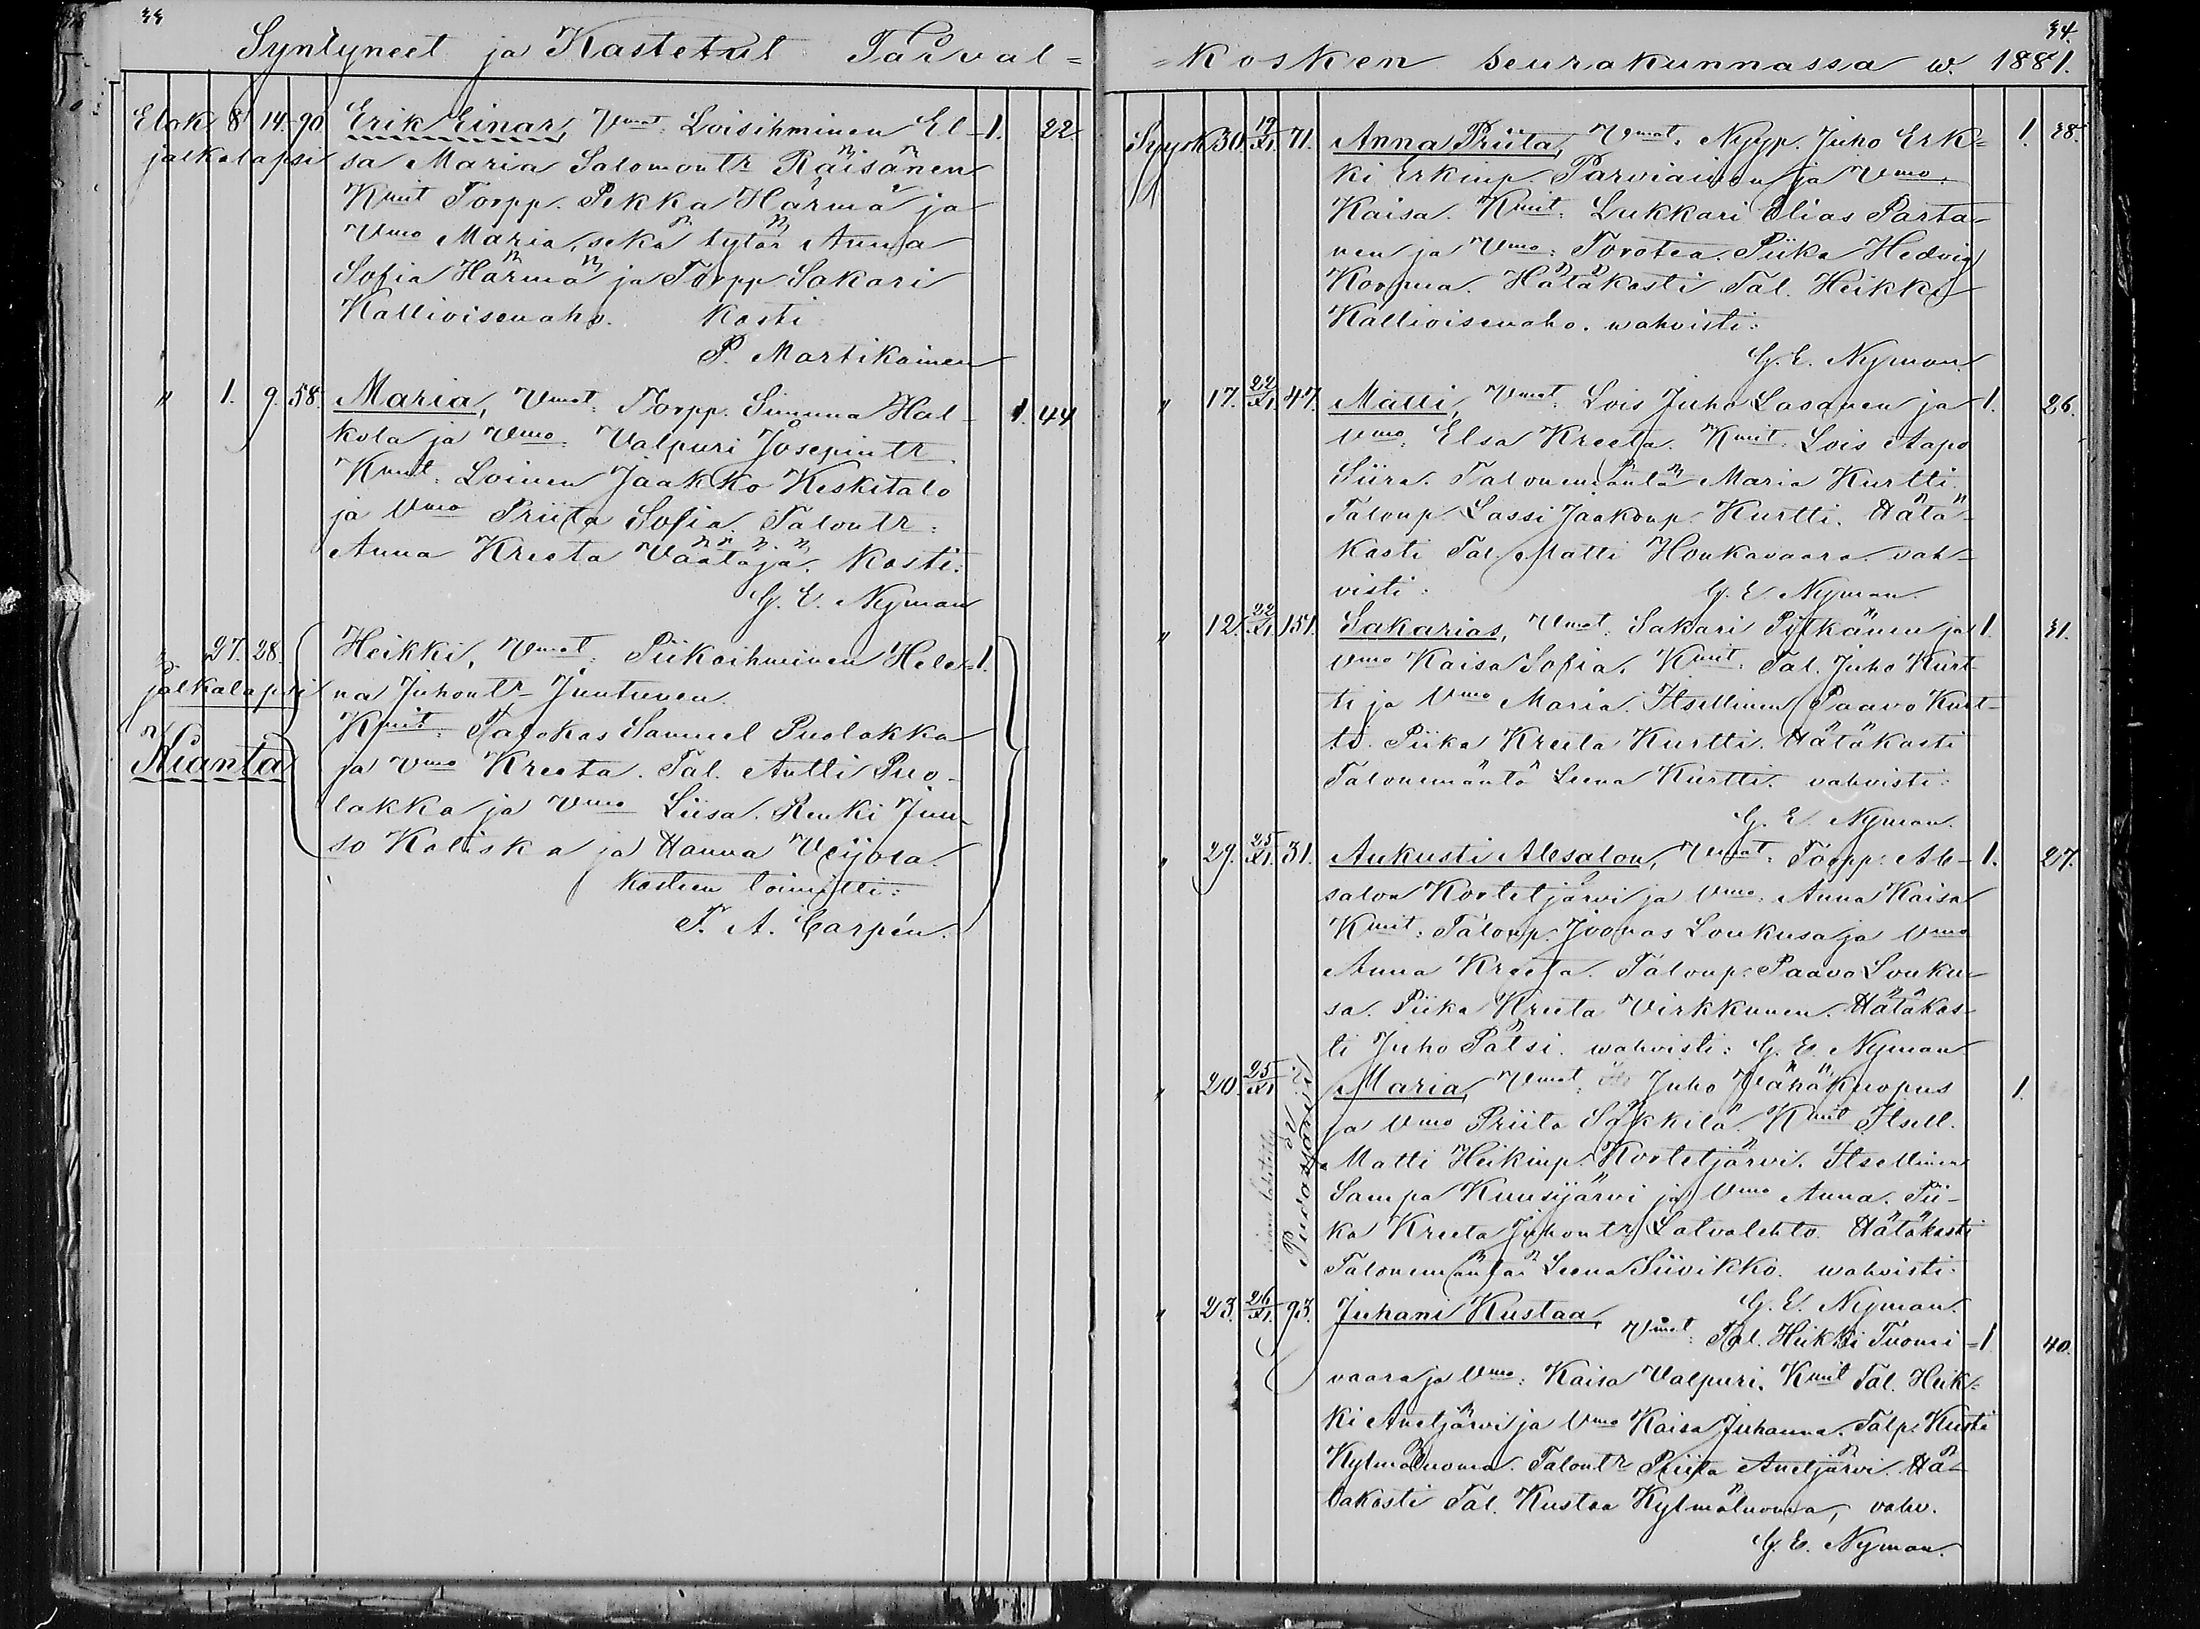 33
Syntyneet ja Kastetut Taival=
Elok. 8 14. 90. Erik Einar, Vmat: Loisihminen El- 1. 22.
jalkalapsi sa Maria Salomontr Räisänen
Kmit Torpp. Pekka Härmä ja
Vmo Maria, sekä tytär Anna
Sofia Härmä ja Torpp Sakari
Kallioisenaho. Kasti
P. Martikainen
" 1. 9. 58. Maria, Vmat: Torpp. Simuna Hal- 1. 44
kola ja Vmo: Valpuri Josepintr.
Kmit: Loinen Jaakko Keskitalo
ja Vmo Priita Sofia. Talontr:
Anna Kreeta Väätäjä. Kasti:
G. E. Nyman
" 27. 28. Heikki, Vmat: Piikaihminen Hele- 1.
jalkalapsi na Juhontr Juntunen.
Kmit: Talokas Samuel Puolakka
Kianta ja Vmo Kreeta. Tal. Antti Puo-
lakka ja Vmo Liisa. Renki Juu-
so Kaliska ja Hanna Veijola.
Kasteen toimitti:
F. A. Carpén.
34.
=kosken seurakunnassa w. 1881.
Syysk 30. 19/XI. 71. Anna Priita, Vmat: Nypp. Juho Erk= 1. 38.
ki Erkinp. Parviainen ja Vmo.
Kaisa. Kmit: Lukkari Elias Parta-
nen ja Vmo: Torotea. Piika Hedvig
Koorma. Hätäkasti Tal. Heikki
Kallioisenaho. wahvisti:
G. E. Nyman
" 17. 22/XI. 47. Matti, Vmat: Lois Juho Lasanen ja 1. 26.
Vmo: Elsa Kreeta. Kmit: Lois Aapo
Siira. Talonemäntä Maria Kurtti.
Talonp. Lassi Jaakonp. Kurtti. Hätä-
kasti Tal. Matti Honkavaara. vah-
visti: G. E. Nyman.
" 12. 22/XI. 151. Sakarias, Vmat. Sakari Pitkänen ja 1. 31.
Vmo Kaisa Sofia. Kmit: Tal. Juho Kurt-
ti ja Vmo Maria. Itsellinen Paavo Kurt-
ti. Piika Kreeta Kurtti. Hätäkasti
Talonemäntä Leena Kurtti. vahvisti:
G. E. Nyman.
" 29. 25/XI. 31. Aukusti Absalon, Vmat: Torpp: Ab- 1. 27.
salon Kortetjärvi ja Vmo: Anna Kaisa
Kmit: Talonp. Joonas Loukusa ja Vmo
Anna Kreeta. Talonp: Paavo Louku-
sa. Piika Kreeta Virkkunen. Hätäkas-
ti Juho Pätsi. wahvisti: G. E. Nyman
" 20. 25/XI Pudasjärvi Maria, Vmat: Juho Vähäkuopus 1.
ja Vmo Priita Säkkilä. Kmit Itsell.
Matti Heikinp. Kortetjärvi. Itsellinen
Sampa Kuusijärvi ja Vmo Anna. Pii-
ka Kreeta Juhontr Latvalehto. Hätäkasti
Talonemäntä Leena Siivikko. wahvisti:
G. E. Nyman.
" 23. 26/XI. 93. Juhani Kustaa, Vmat: Tal. Heikki Tuomi= 1 40.
vaara ja Vmo: Kaisa Valpuri. Kmit Tal. Heik=
ki Anetjärvi ja Vmo Kaisa Juhanna. Talp. Kusta
Kylmäluoma. Talontr Priita Anetjärvi. Hä-
täkasti Tal. Kustaa Kylmäluoma, vahv.
G. E. Nyman.